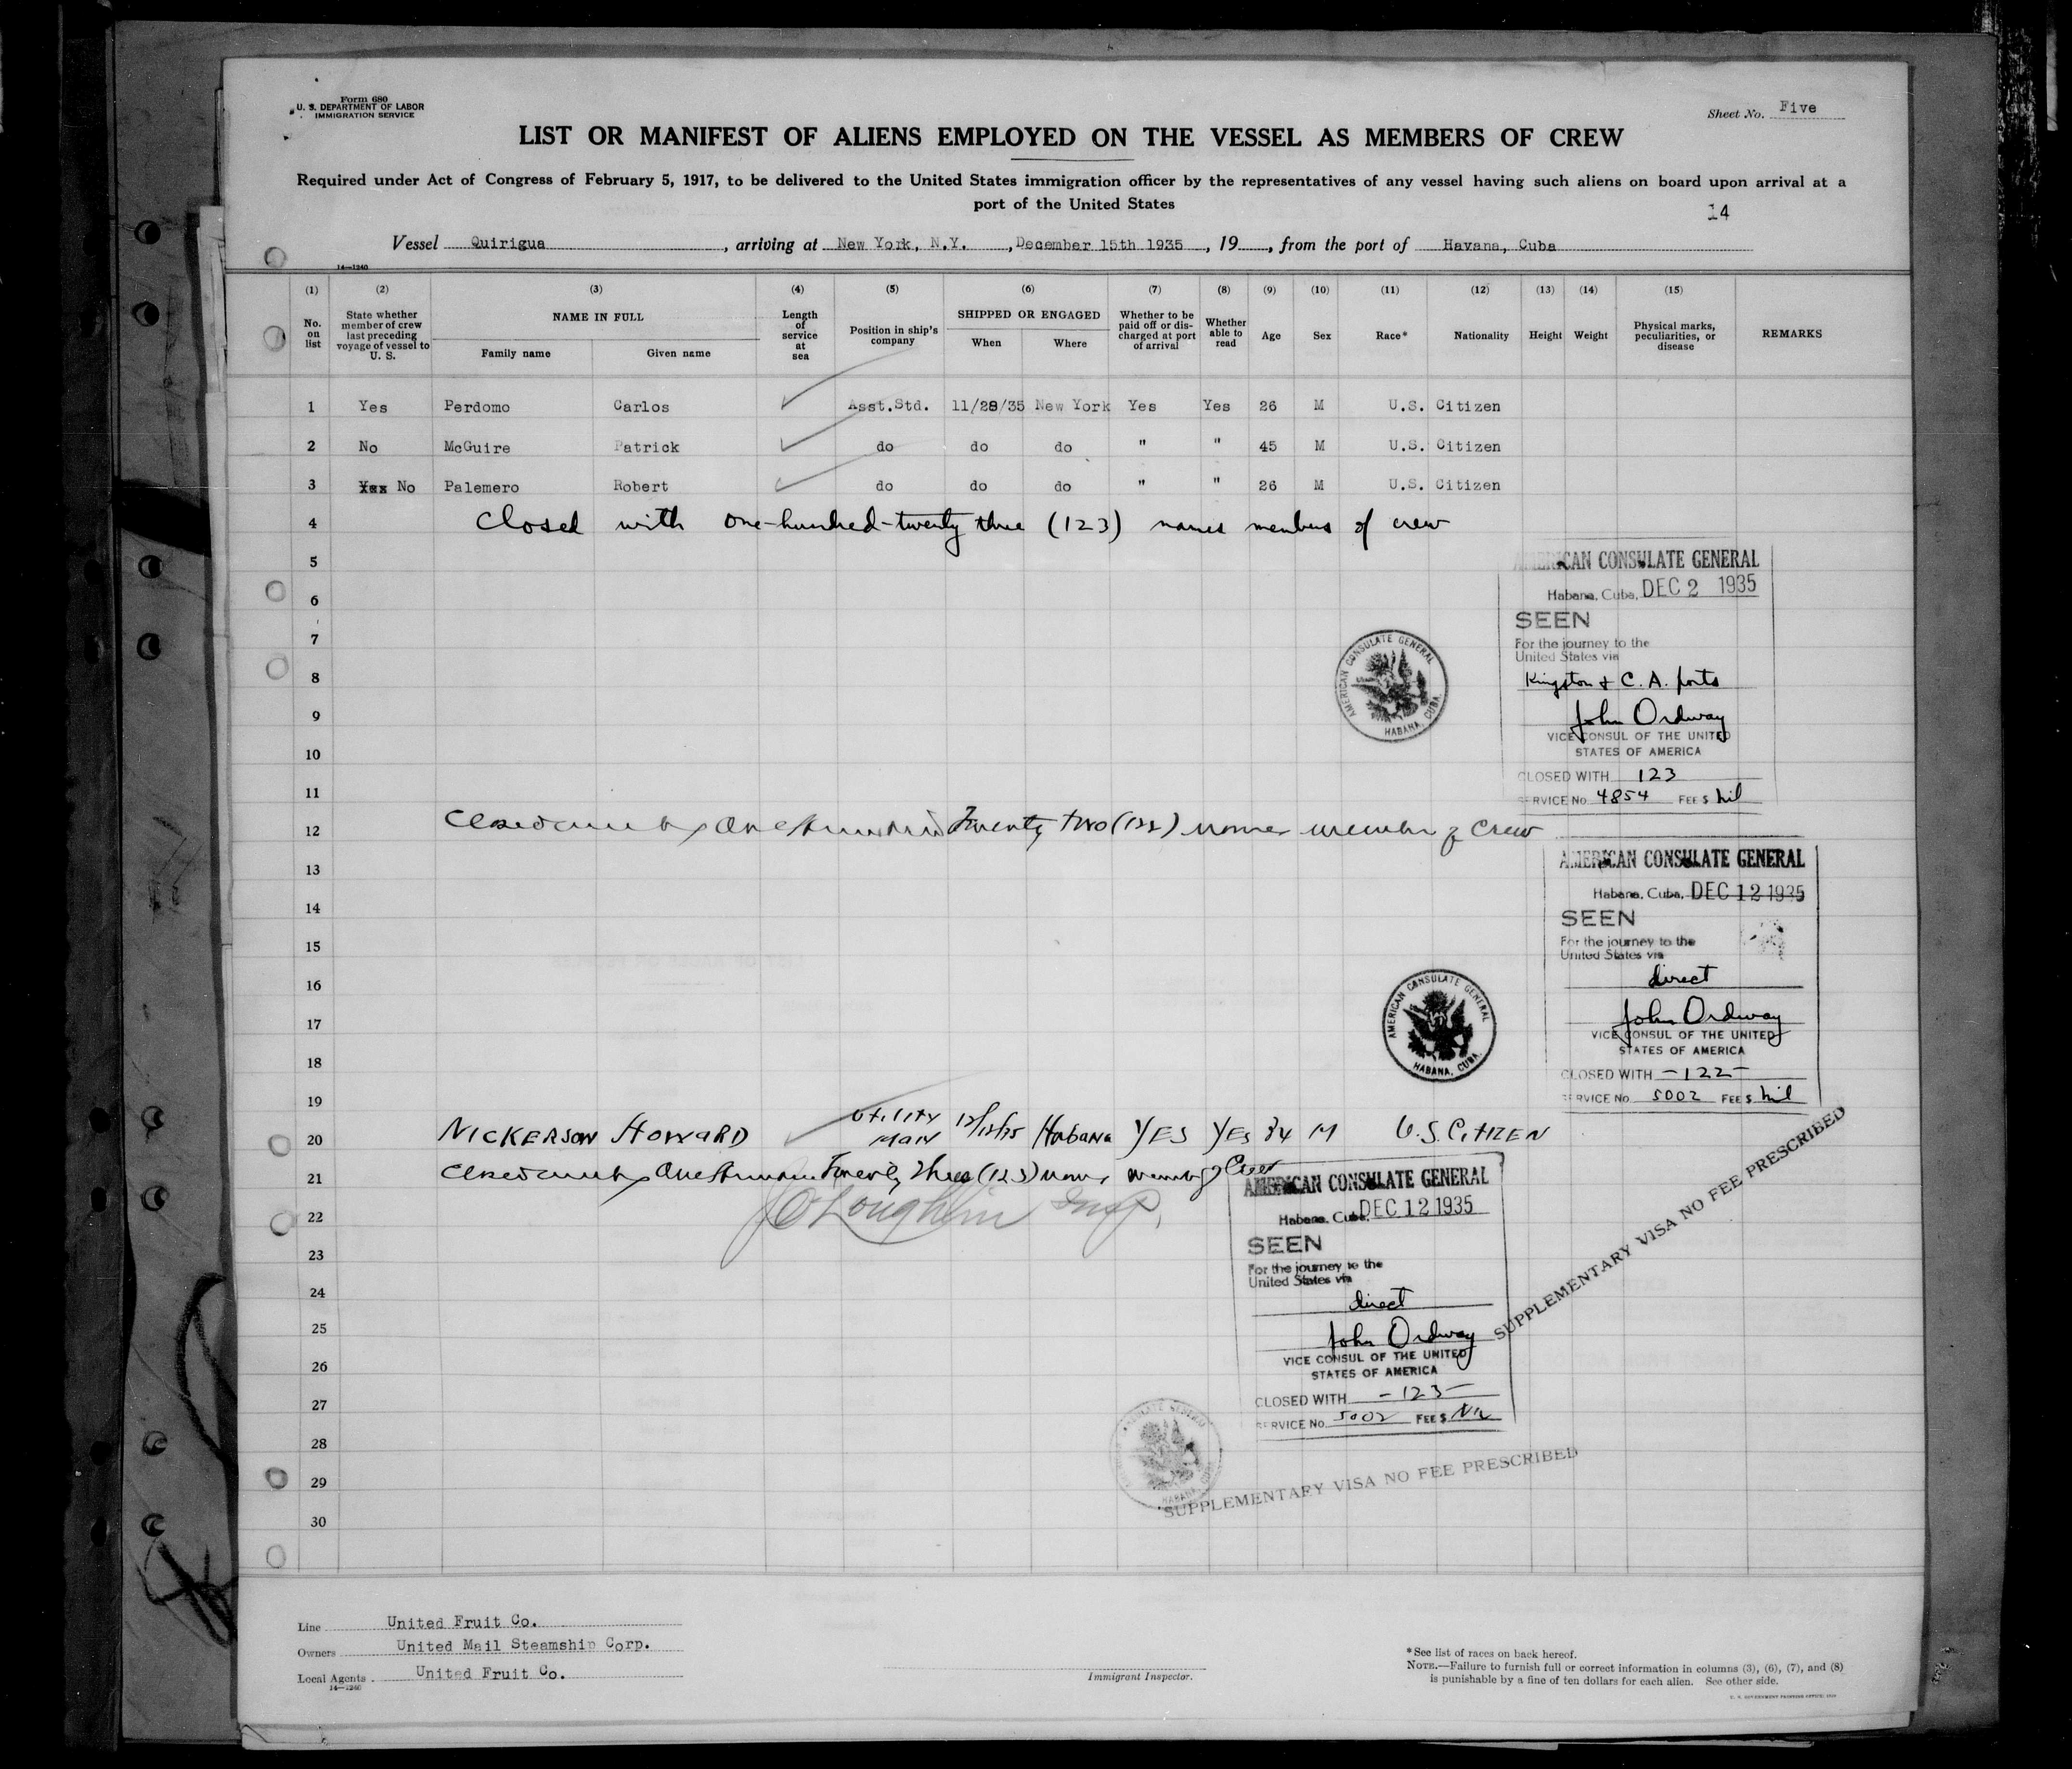 Form 680
U. S. DEPARTMENT OF LABOR
IMMIGRATION SERVICE
Sheet No. Five
LIST OR MANIFEST OF ALIENS EMPLOYED ON THE VESSEL AS MEMBERS OF CREW
Required under Act of Congress of February 5, 1917, to be delivered to the United States immigration officer by the representatives of any vessel having such aliens on board upon arrival at a
port of the United States
14
Vessel Quirigua, arriving at New York, N.Y., December 15th 1935, 19, from the port of Havana, Cuba
14—1240
(1) (2) (3) (4) (5) (6) (7) (8) (9) (10) (11) (12) (13) (14) (15)
No. on list
State whether member of crew last preceding voyage of vessel to U. S.
NAME IN FULL
Family name
Given name
Length of service at sea
Position in ship's company
SHIPPED OR ENGAGED
When
Where
Whether to be paid off or discharged at port of arrival
Whether able to read
Age
Sex
Race*
Nationality
Height
Weight
Physical marks, peculiarities, or disease
REMARKS
1 Yes Perdomo Carlos Asst.Std. 11/29/35 New York Yes Yes 26 M U.S. Citizen
2 No McGuire Patrick do do do " " 45 M U.S. Citizen
3 Yes No Palemero Robert do do do " " 26 M U.S. Citizen
4 Closed with one-hundred-twenty three (123) names members of crew
5
6
7
8
9
10
11
AMERICAN CONSULATE GENERAL
Habana, Cuba, DEC 2 1935
SEEN
For the journey to the
United States via
Kingston & C. A. ports
John Ordway
VICE CONSUL OF THE UNITED
STATES OF AMERICA
CLOSED WITH 123
SERVICE No. 4854 FEE $ nil
AMERICAN CONSULATE GENERAL
HABANA, CUBA.
12 Twenty two (122) names member of Crew
13
14
15
16
17
18
19
AMERICAN CONSULATE GENERAL
Habana, Cuba, DEC 12 1935
SEEN
For the journey to the
United States via
direct
John Ordway
VICE CONSUL OF THE UNITED
STATES OF AMERICA
CLOSED WITH -122-
SERVICE No. 5002 FEE $ nil
AMERICAN CONSULATE GENERAL
HABANA, CUBA.
SUPPLEMENTARY VISA NO FEE PRESCRIBED
20 NICKERSON HOWARD UTILITY MAN 12/12/35 Habana YES YES 34 M U.S. CITIZEN
21 Twenty Three (123) of Crew
22 O'Loughlin Insp.
23
24
25
26
27
28
29
30
AMERICAN CONSULATE GENERAL
Habana, Cuba, DEC 12 1935
SEEN
For the journey to the
United States via
direct
John Ordway
VICE CONSUL OF THE UNITED
STATES OF AMERICA
CLOSED WITH -123-
SERVICE No. 5002 FEE $ Nil
SUPPLEMENTARY VISA NO FEE PRESCRIBED
Line United Fruit Co.
Owners United Mail Steamship Corp.
Local Agents United Fruit Co.
14—1240
Immigrant Inspector.
*See list of races on back hereof.
NOTE.—Failure to furnish full or correct information in columns (3), (6), (7), and (8)
is punishable by a fine of ten dollars for each alien. See other side.
U. S. GOVERNMENT PRINTING OFFICE